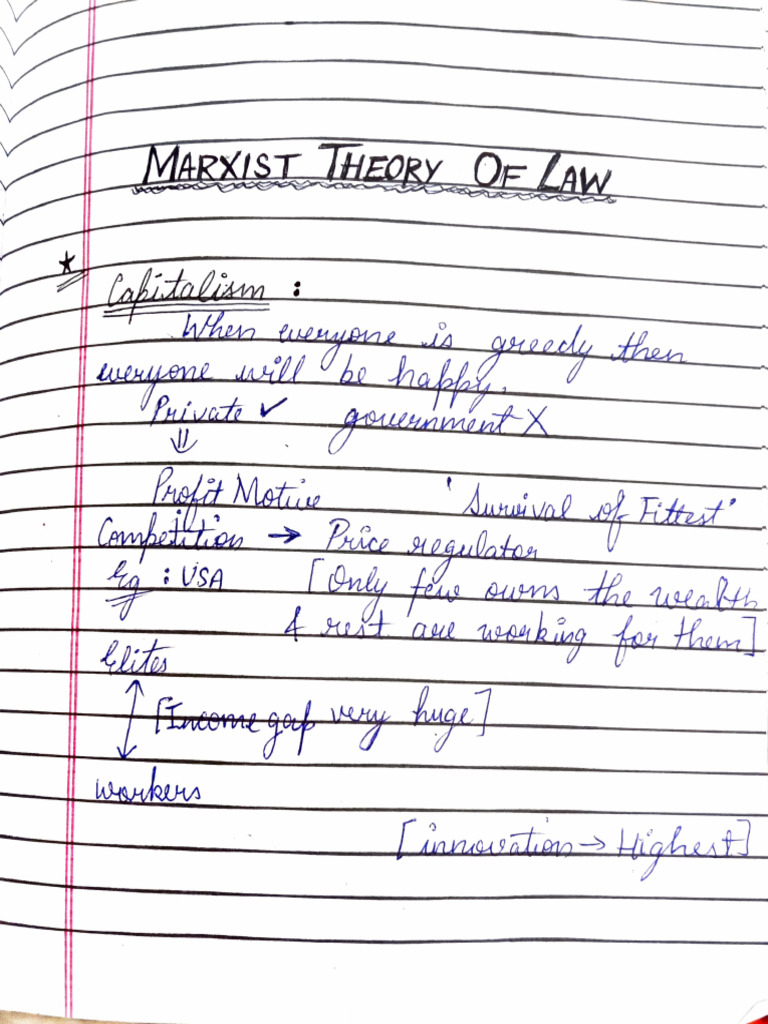 MARXIST THEORY OF LAW
★ Capitalism :
When everyone is greedy then
everyone will be happy.
Private ✓ government X
⇓
Profit Motive 'Survival of Fittest'
Competition → Price regulator
Eg : USA [Only few owns the wealth
& rest are working for them]
Elites
↕ [Income gap very huge]
workers
[innovation → Highest]